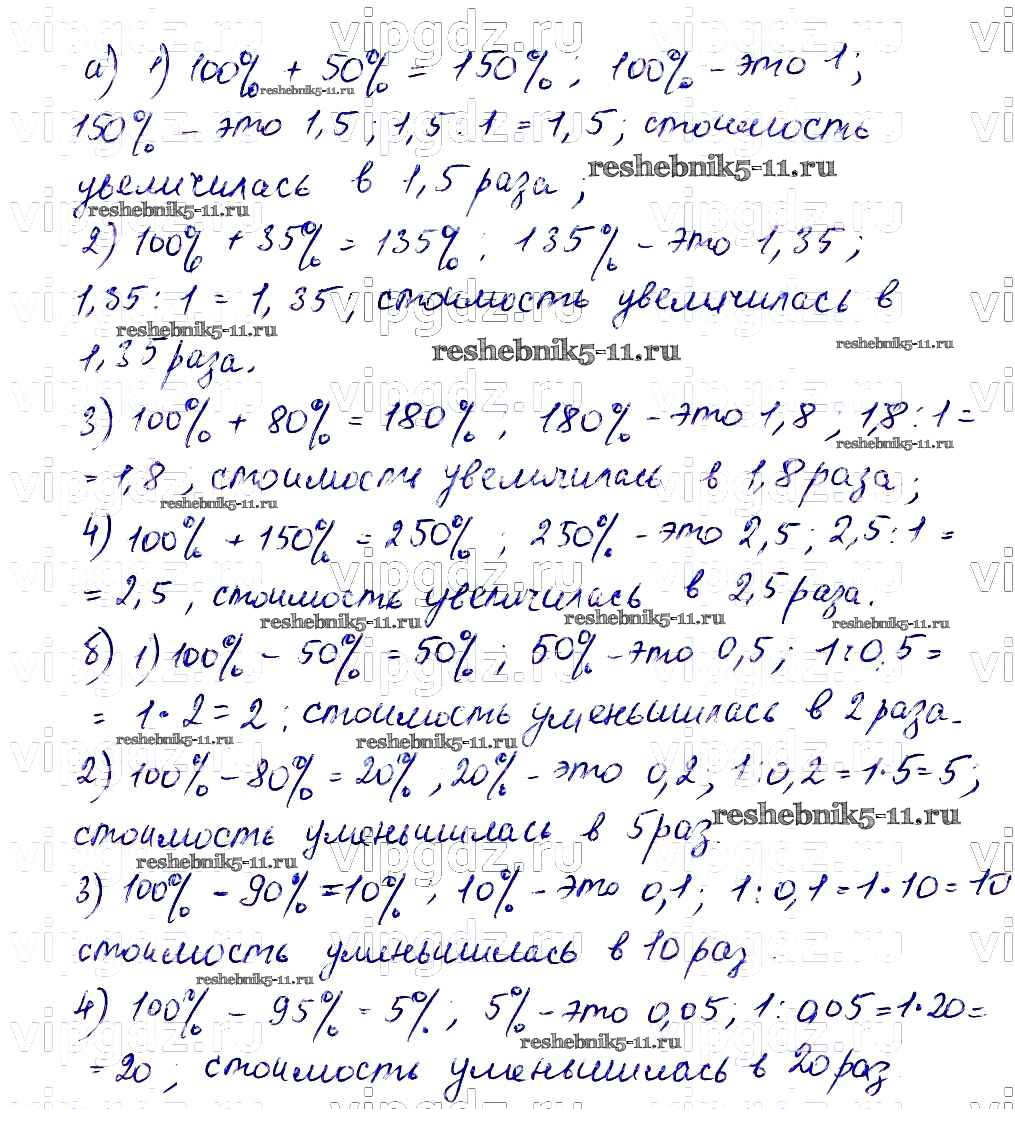 а) 1) 100% + 50% = 150% ; 100% - это 1 ;
150% - это 1,5 ; 1,5 : 1 = 1,5 ; стоимость
увеличилась в 1,5 раза ;
2) 100% + 35% = 135% ; 135% - это 1,35 ;
1,35 : 1 = 1,35 ; стоимость увеличилась в
1,35 раза.
3) 100% + 80% = 180% ; 180% - это 1,8 ; 1,8 : 1 =
= 1,8 , стоимость увеличилась в 1,8 раза ;
4) 100% + 150% = 250% ; 250% - это 2,5 ; 2,5 : 1 =
= 2,5 , стоимость увеличилась в 2,5 раза.
б) 1) 100% - 50% = 50% ; 50% - это 0,5 ; 1 : 0,5 =
= 1 · 2 = 2 ; стоимость уменьшилась в 2 раза.
2) 100% - 80% = 20% , 20% - это 0,2 ; 1 : 0,2 = 1 · 5 = 5 ;
стоимость уменьшилась в 5 раз.
3) 100% - 90% = 10% , 10% - это 0,1 ; 1 : 0,1 = 1 · 10 = 10
стоимость уменьшилась в 10 раз .
4) 100% - 95% = 5% ; 5% - это 0,05 ; 1 : 0,05 = 1 · 20 =
= 20 ; стоимость уменьшилась в 20 раз
reshebnik5-11.ru
vipgdz.ru